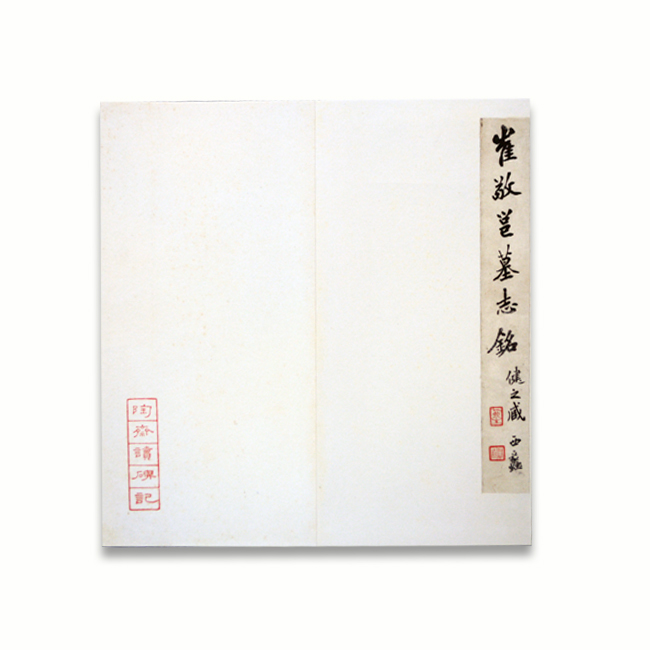 崔敬邕墓志銘
健之藏 西蠡
陶齋讀碑記